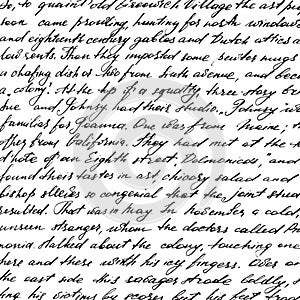 So, to quaint old Greenwich Village the art peo
soon came prowling, hunting for north windows
and eighteenth century gables and Dutch attics a
low rents. Then they imported some pewter mugs
a chafing dish or two from Sixth avenue, and beca
a colony. At the top of a squatty, three-story bric
Sue and Johnsy had their studio. Johnsy was
familiar for Joanna. One was from Maine; t
other from California. They had met at the t
d'hote of an Eighth street, Delmonicos, and
found their tastes in art chicory salad and
bishop sleeves so congenial that the joint stud
resulted. That was in May. In November a cold,
unseen stranger, whom the doctors called Pn
monia stalked about the colony, touching one
here and there with his icy fingers. Over on
the east side this ravager strode boldly,
ing his victims by scores but his feet